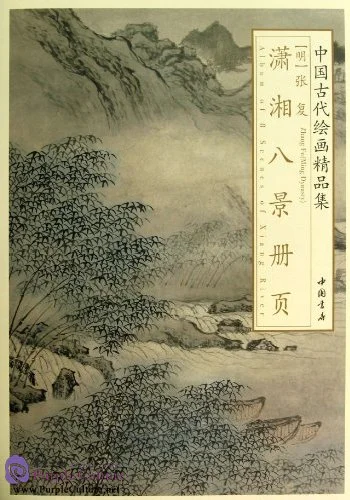 中国古代绘画精品集
[明]张复
Zhang Fu(Ming Dynasty)
潇湘八景册页
Album of 8 Scenes of Xiang River
中国书店
www.PurpleCulture.net